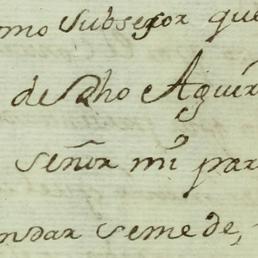 omo Subsesor que
de Dho Aguir
señor mi par
ndar se me de,